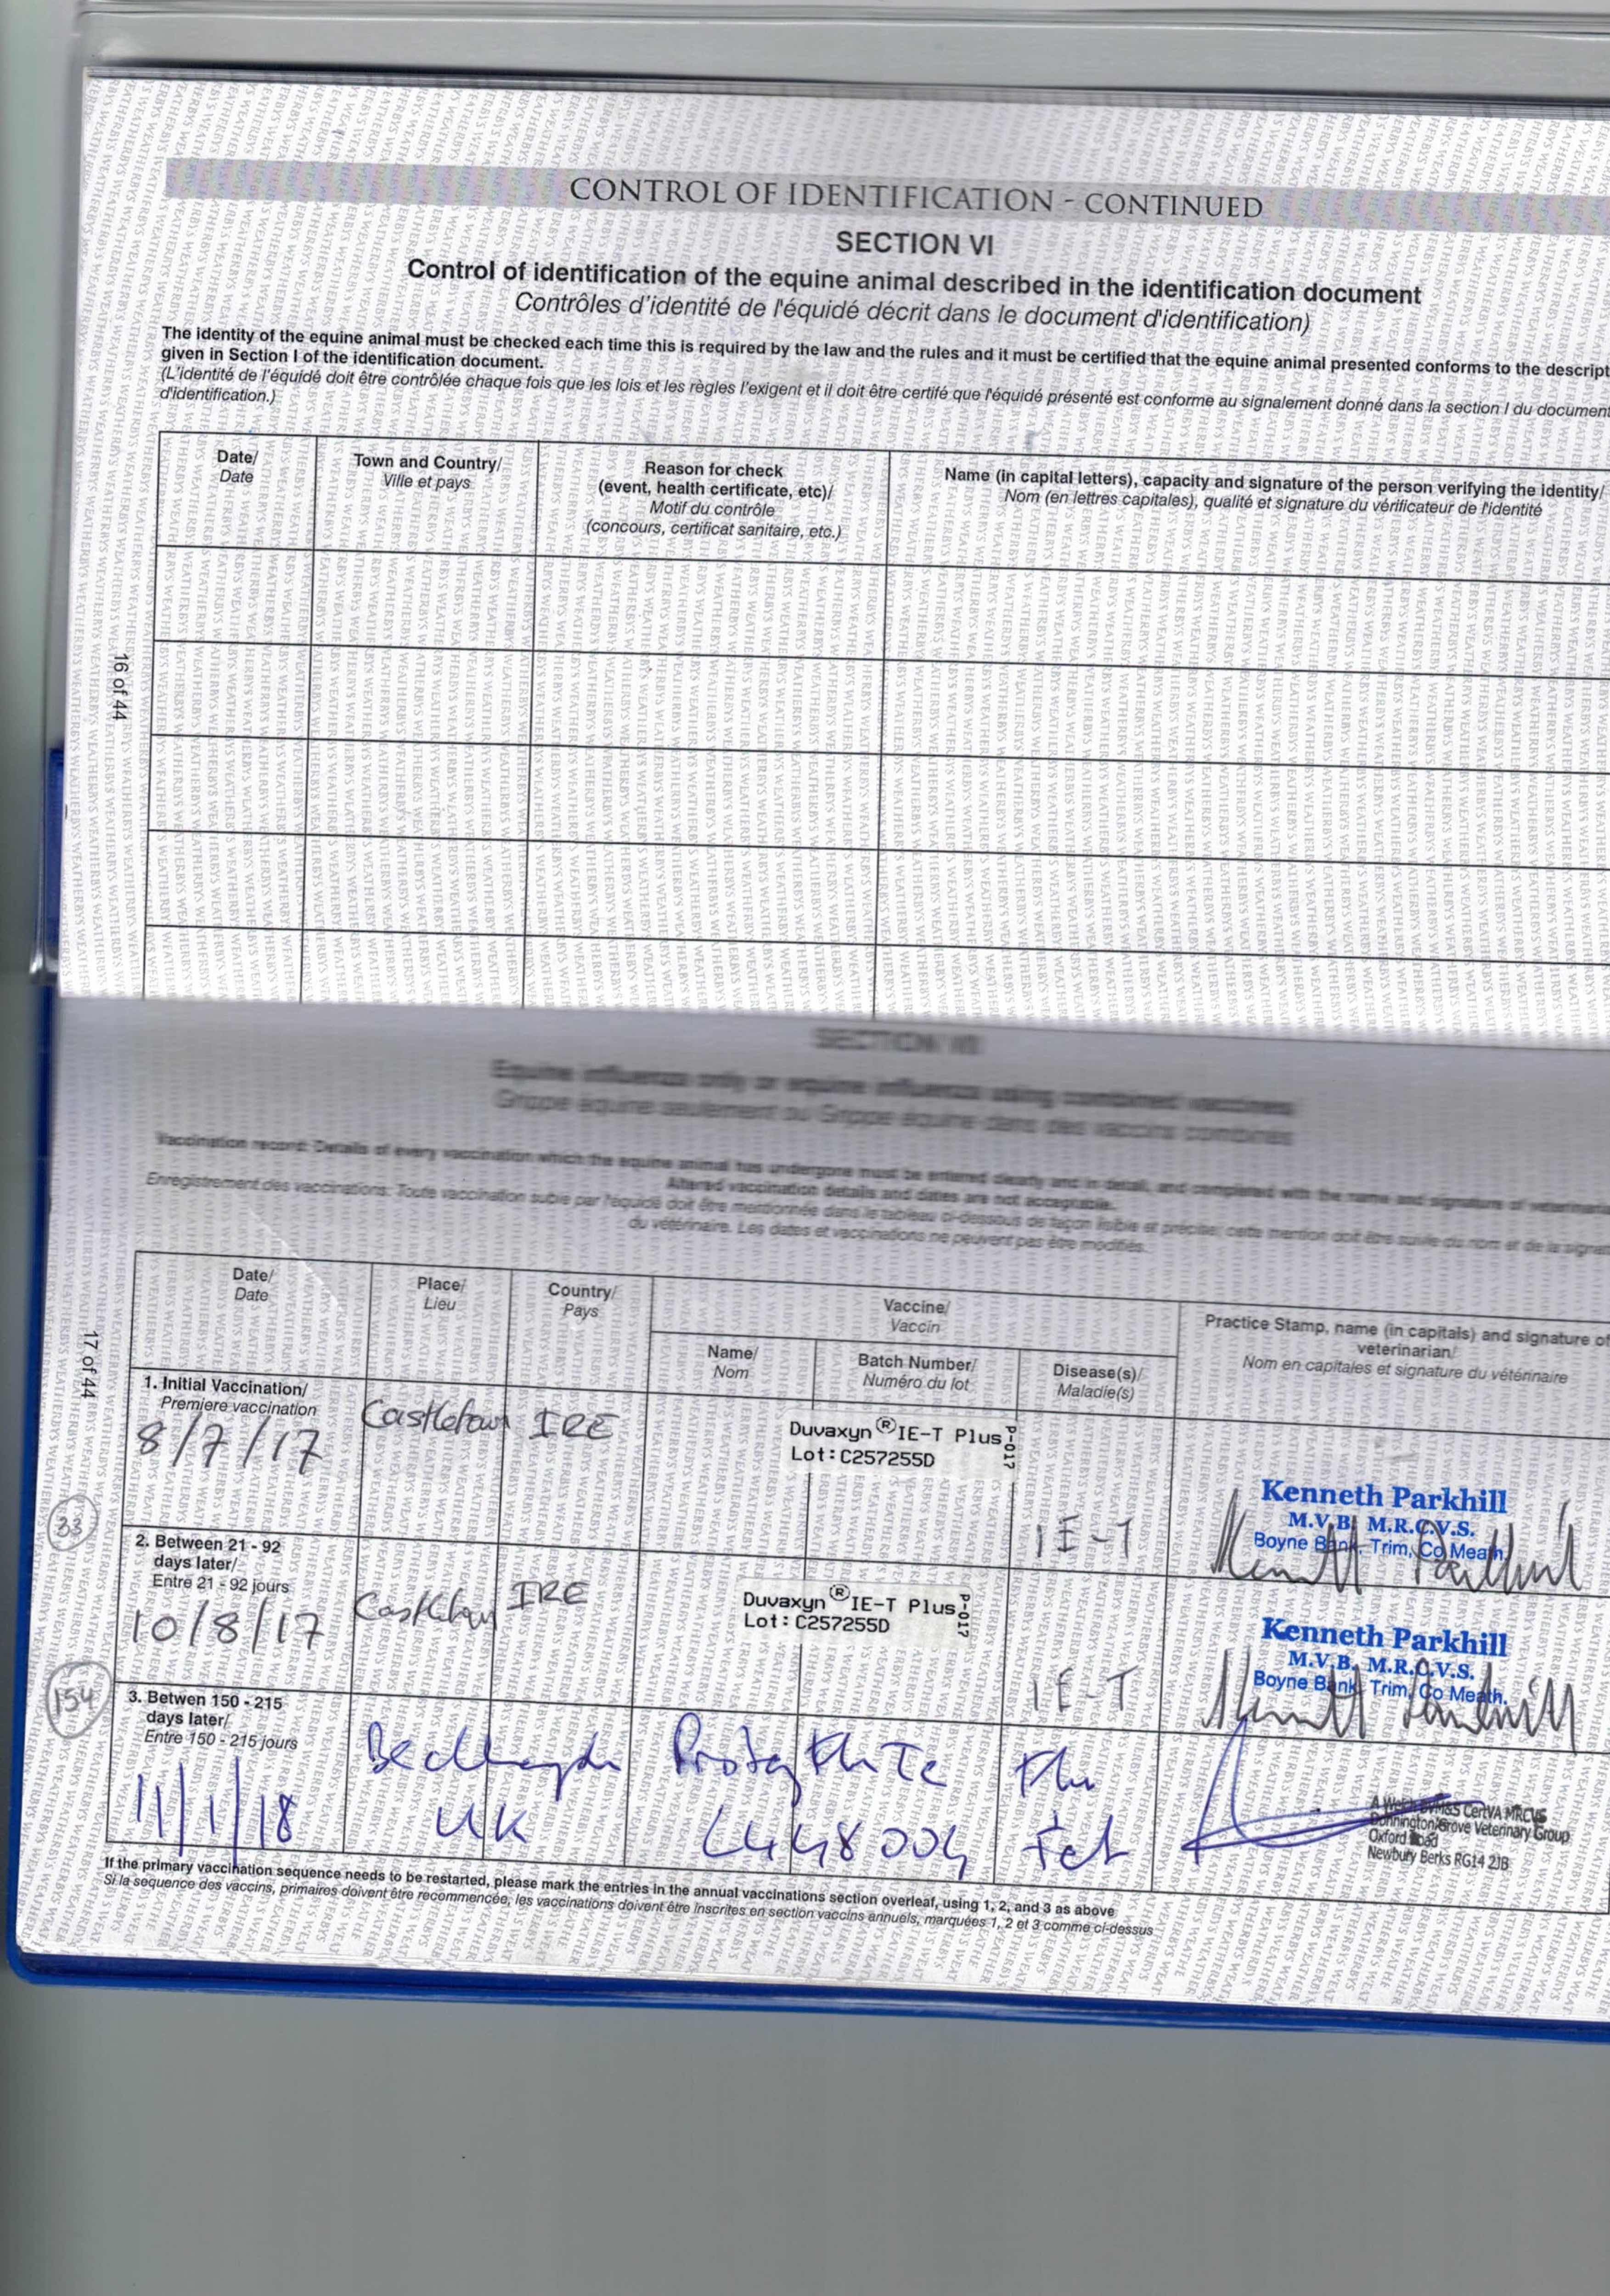 CONTROL OF IDENTIFICATION - CONTINUED
SECTION VI
Control of identification of the equine animal described in the identification document
Contrôles d'identité de l'équidé décrit dans le document d'identification)
The identity of the equine animal must be checked each time this is required by the law and the rules and it must be certified that the equine animal presented conforms to the descript
given in Section I of the identification document.
(L'identité de l'équidé doit être contrôlée chaque fois que les lois et les règles l'exigent et il doit être certifé que l'équidé présenté est conforme au signalement donné dans la section I du document
d'identification.)
Date/
Date
Town and Country/
Ville et pays
Reason for check
(event, health certificate, etc)/
Motif du contrôle
(concours, certificat sanitaire, etc.)
Name (in capital letters), capacity and signature of the person verifying the identity/
Nom (en lettres capitales), qualité et signature du vérificateur de l'identité
16 of 44
SECTION VII
Equine influenza only or equine influenza using combined vaccines
Grippe équine seulement ou Grippe équine dans des vaccins combines
Vaccination record: Details of every vaccination which the equine animal has undergone must be entered clearly and in detail, and completed with the name and signature of veterinaria
Altered vaccination details and dates are not acceptable.
Enregistrement des vaccinations: Toute vaccination subie par l'équidé doit être mentionnée dans le tableau ci-dessous de façon lisible et précise; cette mention doit être suivie du nom et de la signat
du vétérinaire. Les dates et vaccinations ne peuvent pas être modifiés.
17 of 44
Date/
Date
Place/
Lieu
Country/
Pays
Vaccine/
Vaccin
Name/
Nom
Batch Number/
Numéro du lot
Disease(s)/
Maladie(s)
Practice Stamp, name (in capitals) and signature of
veterinarian/
Nom en capitales et signature du vétérinaire
1. Initial Vaccination/
Premiere vaccination
8/7/17
Castletown IRE
Duvaxyn®IE-T Plus
Lot:C257255D
P-017
IE-T
Kenneth Parkhill
M.V.B. M.R.C.V.S.
Boyne Bank, Trim, Co Meath.
33
2. Between 21 - 92
days later/
Entre 21 - 92 jours
10/8/17
Castletown IRE
Duvaxyn®IE-T Plus
Lot:C257255D
P-017
IE-T
Kenneth Parkhill
M.V.B. M.R.C.V.S.
Boyne Bank, Trim, Co Meath.
154
3. Betwen 150 - 215
days later/
Entre 150 - 215 jours
11/1/18
UK
L448004
Flu
Tet
A Welch BVM&S CertVA MRCVS
Donnington Grove Veterinary Group
Oxford Road
Newbury Berks RG14 2JB
If the primary vaccination sequence needs to be restarted, please mark the entries in the annual vaccinations section overleaf, using 1, 2, and 3 as above
Si la sequence des vaccins, primaires doivent être recommencée, les vaccinations doivent être inscrites en section vaccins annuels, marquées 1, 2 et 3 comme ci-dessus